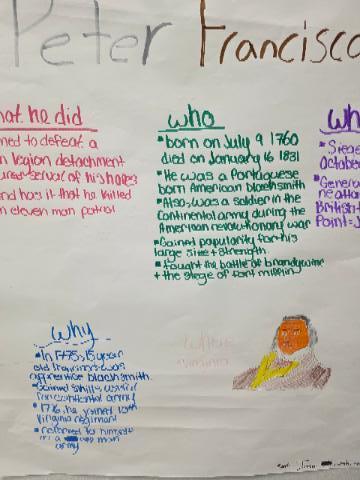 Peter Francisco
hat he did
med to defeat a
n legion detachment
ured several of his horses
end has it that he killed
n eleven man patrol
who
• born on July 9 1760
died on January 16 1831
• He was a Portuguese
born American blacksmith
• Also, was a soldier in the
Continental army during the
American revolutionary war
• Gained popularity for his
large size + strength
• fought the battle of brandywine
+ the siege of fort mifflin
wh
• Siege
October
• General
British
Point
why
• In 1775, 15 year
old was
apprentice blacksmith.
• Gained skills
continental army
• 1776, he joined 10th
Virginia regiment
• referred to himself
man
army
Where
• Virginia